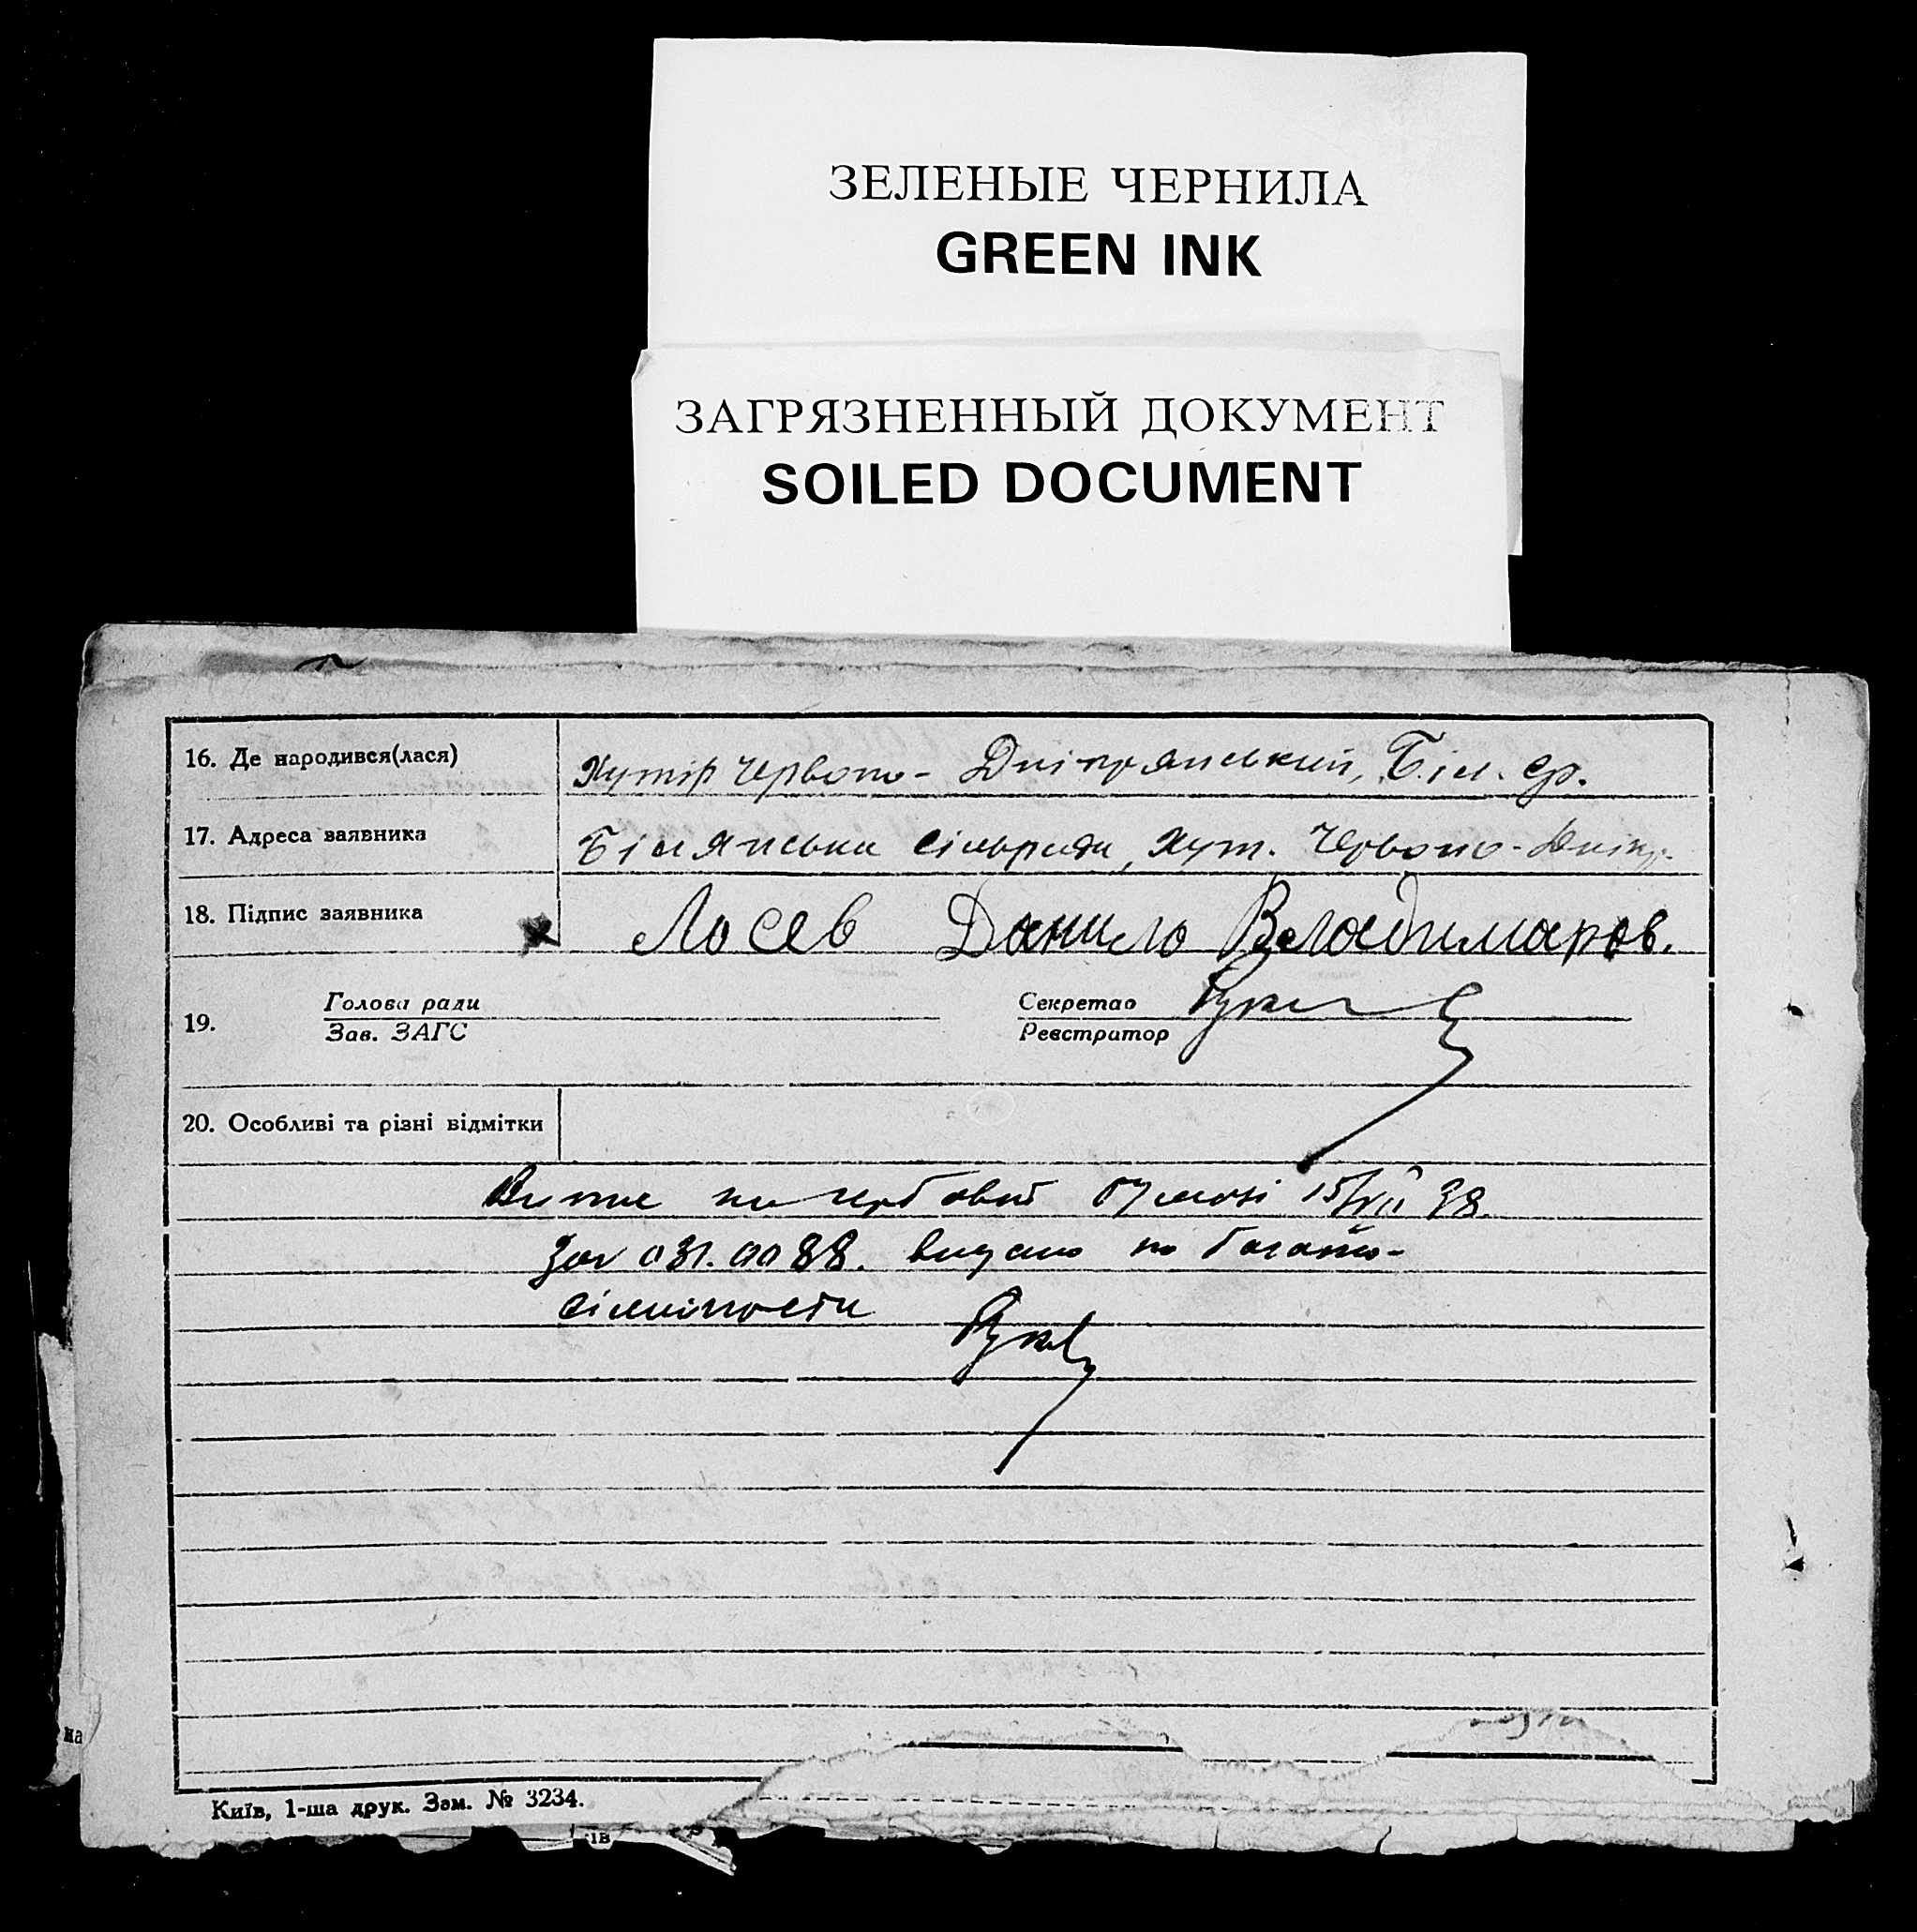 ЗЕЛЕНЫЕ ЧЕРНИЛА
GREEN INK
ЗАГРЯЗНЕННЫЙ ДОКУМЕНТ
SOILED DOCUMENT
16. Де народився(лася) Хутір Червоно-Дніпрянський, Біл. ср.
17. Адреса заявника Білянська сільрада, хут. Червоно-Дніпр.
18. Підпис заявника Лосев Данило Владимиров.
19. Голова ради Секретар
Зав. ЗАГС Реєстратор
20. Особливі та різні відмітки
Витяг на гербовой бумазі 15/VII 38.
за 031.0088. видано по багато-
сімейности
Київ, 1-ша друк. Зам. № 3234.